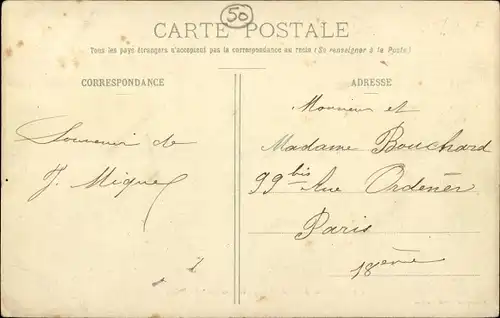 50
CARTE POSTALE
Tous les pays étrangers n'acceptent pas la correspondance au recto (Se renseigner à la Poste)
CORRESPONDANCE
ADRESSE
Souvenir de
J. Miquel
Monsieur et
Madame Bouchard
99 bis Rue Ordener
Paris
18ème